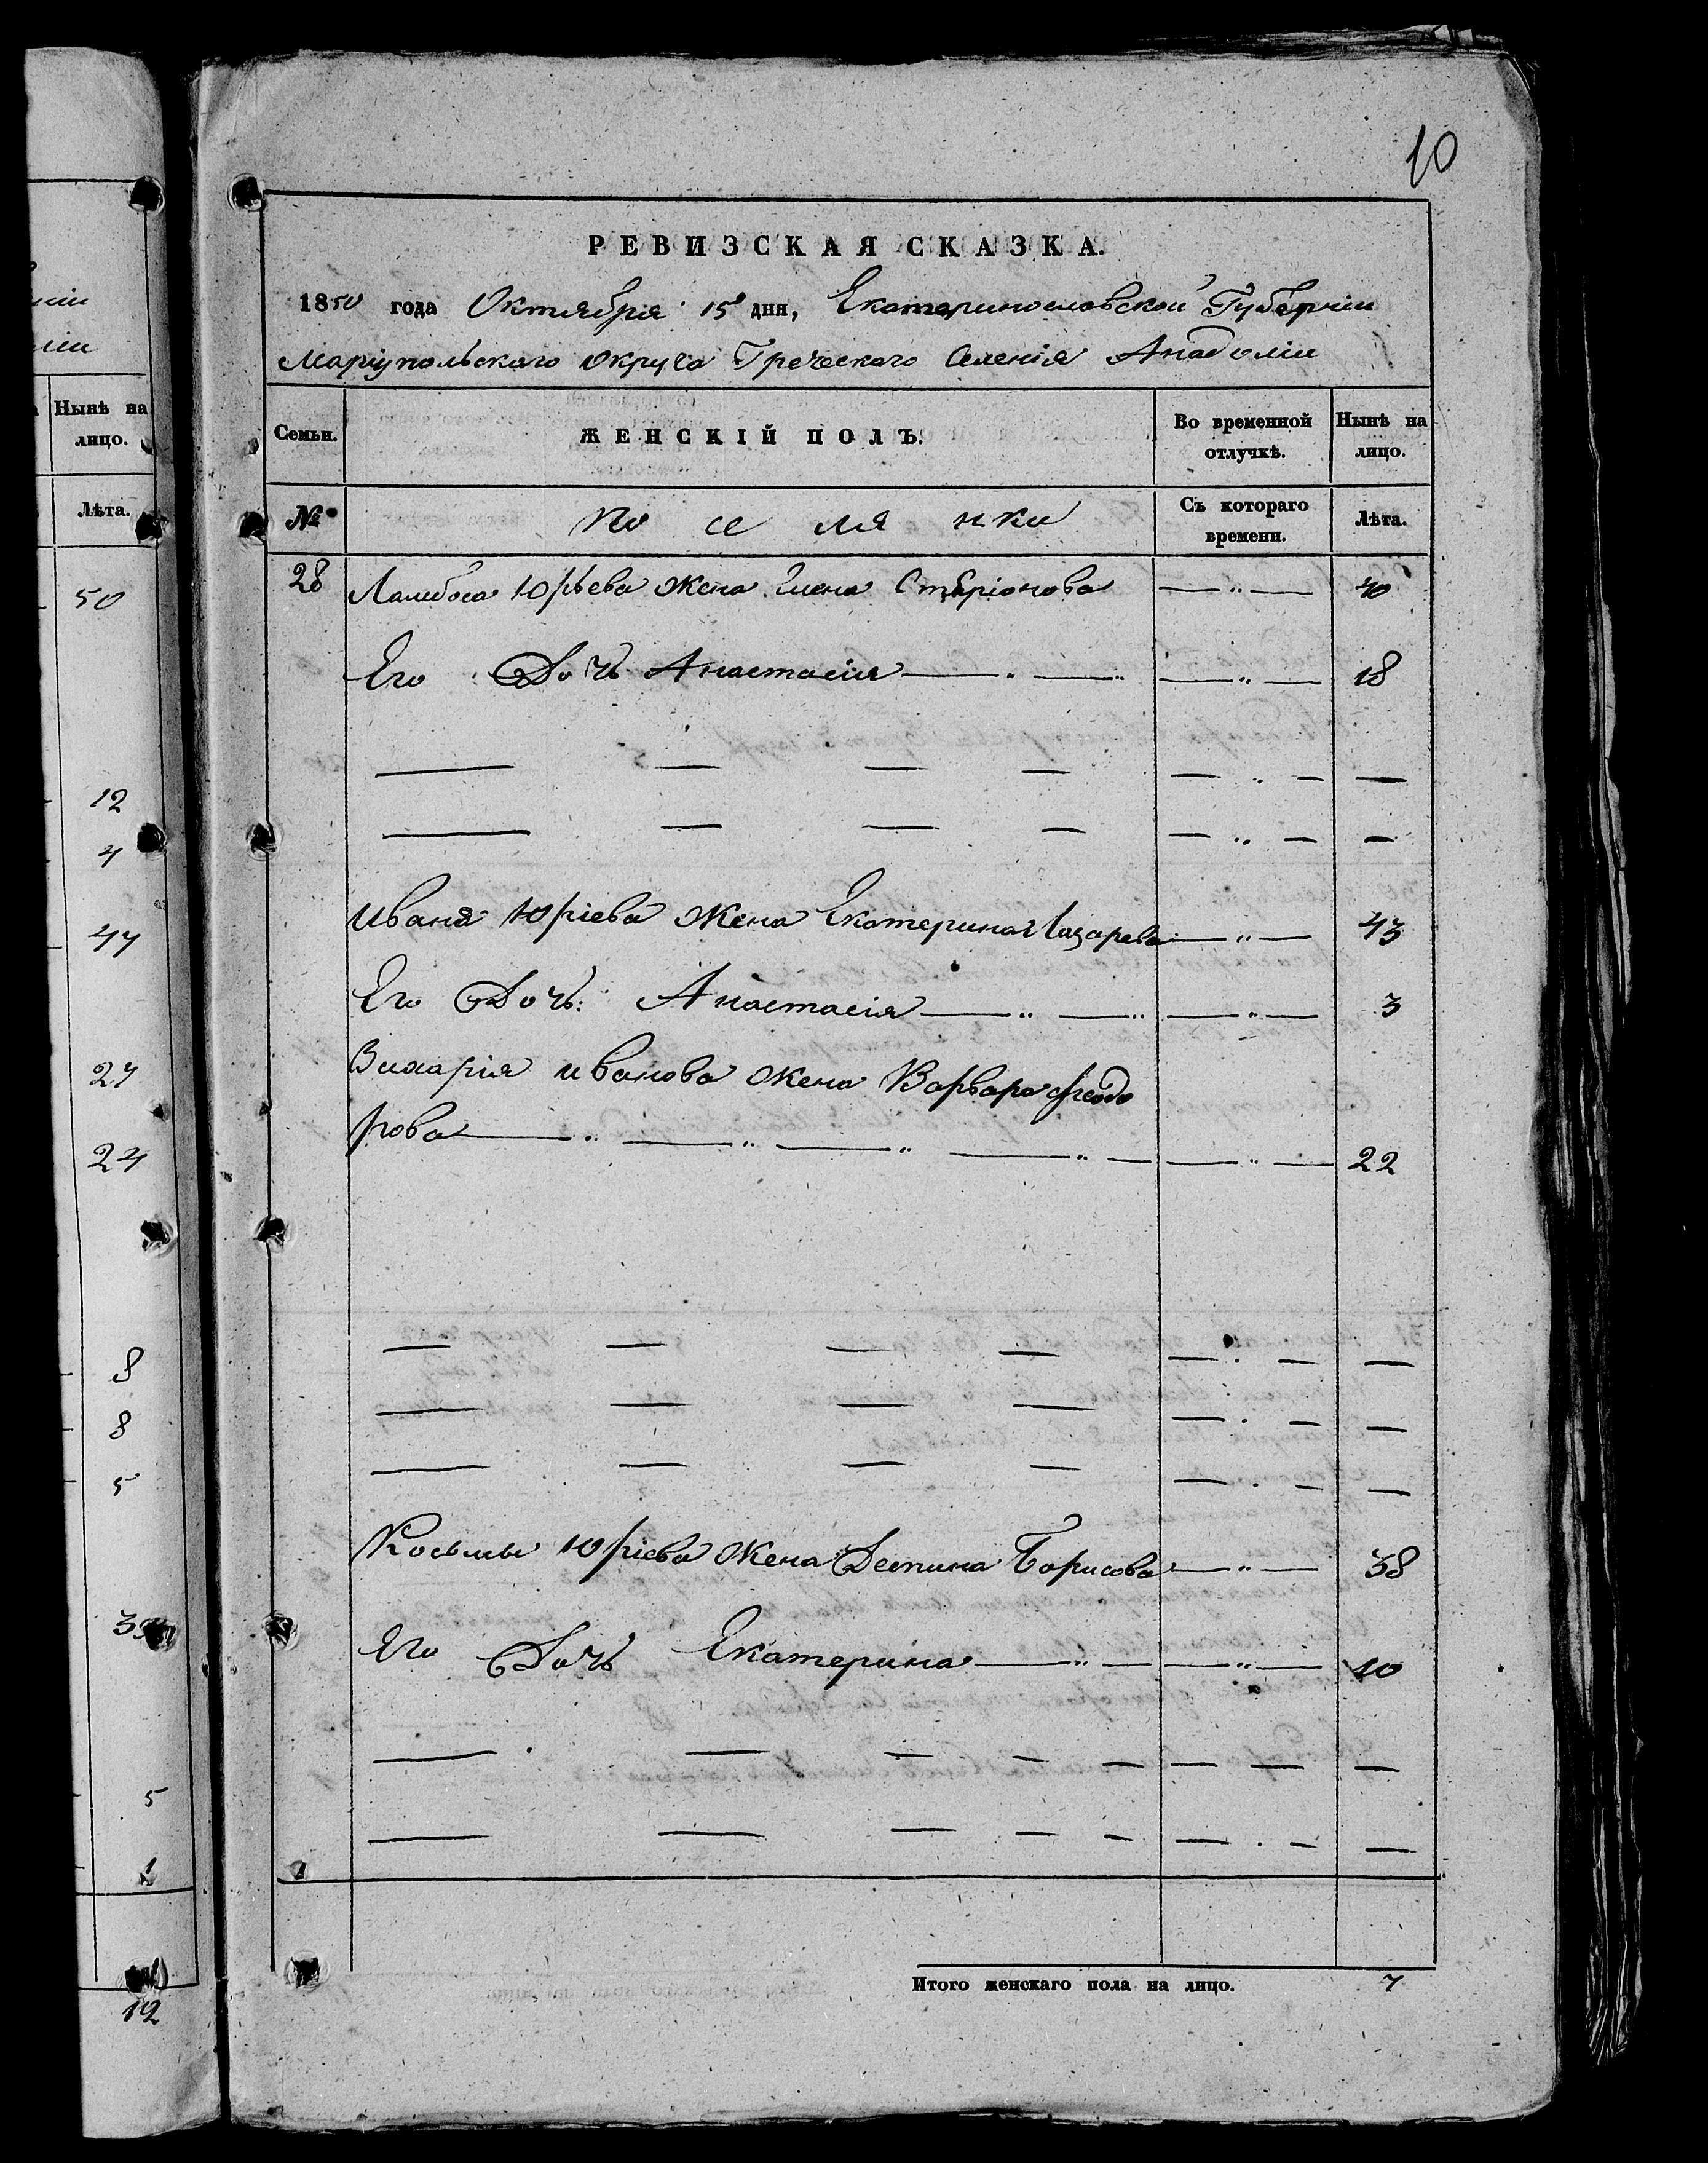 10
РЕВИЗСКАЯ СКАЗКА.
1850 года Октября 15 дня, Екатеринославской Губерніи
Маріупольского округа Греческого Селенія Анадоліи
Семьи. ЖЕНСКІЙ ПОЛЪ. Во временной отлучкѣ. Нынѣ на лицо.
№ поселянки Съ котораго времени. Лѣта.
28 Ламбоса Юрьева жена Елена Стеріонова — „ — 40
Его Дочь Анастасія — „ — „ — „ — 18
— — — — — „ — —
— — — — — „ — —
Ивана Юріева жена Екатерина Лазарева — „ — 43
Его Дочь: Анастасія — „ — „ — „ — 3
Захарія иванова жена Варвара Феодо
рова — „ — „ — „ — „ — — „ — 22
— — — — — . — —
— — — — — . — —
— — — — — . — —
Косьмы Юріева жена Деспина Борисова — „ — 38
Его Дочь Екатерина — „ — — „ — 10
— — — — — — — —
— — — — — — . — —
1
Итого женскаго пола на лицо. 7
ніи
ліи
Нынѣ на
лицо.
Лѣта.
50
12
4
47
27
24
8
8
5
5
1
12